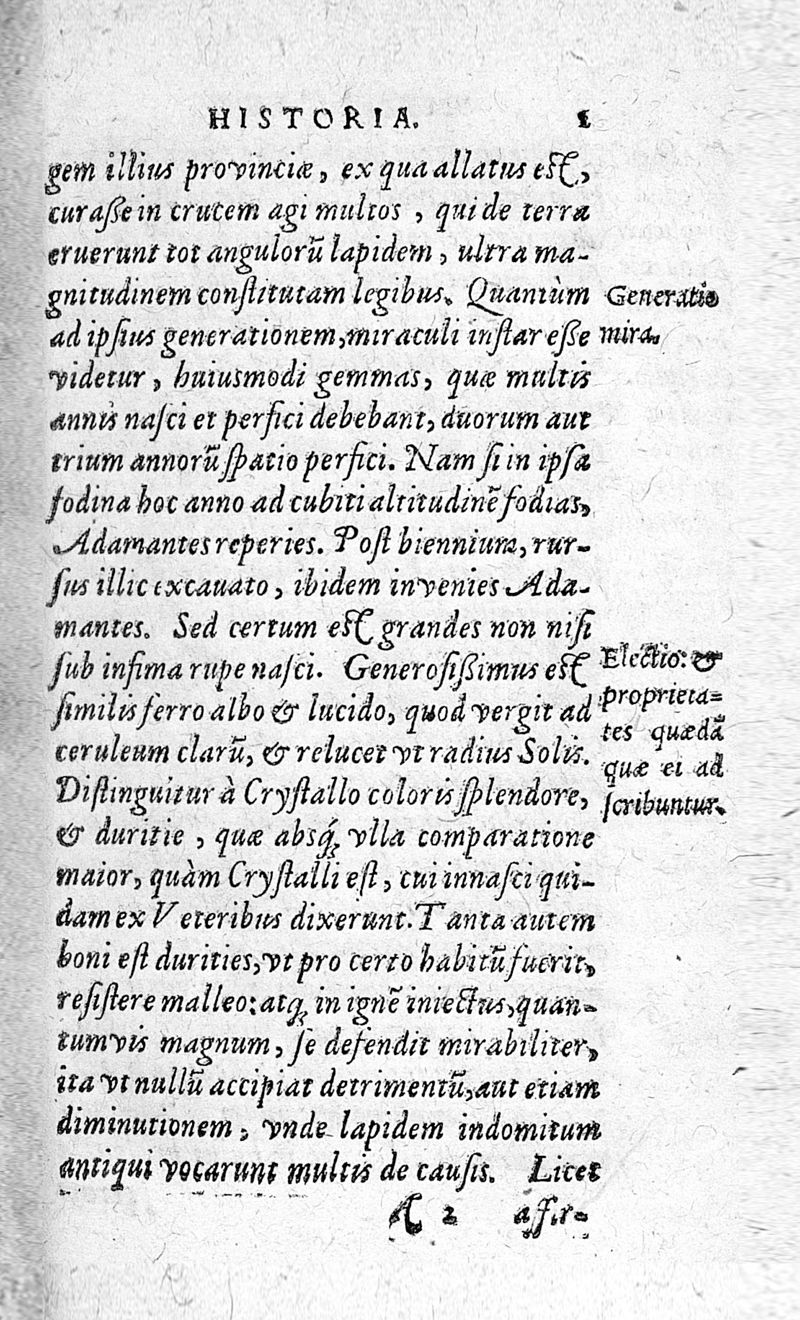 HISTORIA.
gem illius provinciæ, ex qua allatus est,
curaſſe in crucem agi multos , qui de terra
eruerunt tot angulorũ lapidem, ultra ma-
gnitudinem conſtitutam legibus. Quantùm
Generatio
ad ipſius generationem, miraculi inſtar eſſe
mira.
videtur, huiusmodi gemmas, quæ multis
annis naſci et perfici debebant, duorum aut
trium annorũ ſpatio perfici. Nam ſi in ipſa
fodina hoc anno ad cubiti altitudinẽ fodias,
Adamantes reperies. Poſt biennium, rur-
ſus illic excauato, ibidem invenies Ada-
mantes. Sed certum est grandes non niſi
ſub infima rupe naſci. Generoſiſſimus est
Electio: &
ſimilis ferro albo & lucido, quod vergit ad
proprieta-
tes quædã
ceruleum clarũ, & relucet vt radius Solis.
quæ ei ad
Diſtinguitur à Cryſtallo coloris ſplendore,
ſcribuntur.
& duritie , quæ absq́; vlla comparatione
maior, quàm Cryſtalli eſt, cui innaſci qui-
dam ex Veteribus dixerunt. Tanta autem
boni eſt durities, vt pro certo habitũ fuerit,
reſiſtere malleo: atq; in ignẽ iniectus, quan-
tumvis magnum, ſe defendit mirabiliter,
ita vt nullũ accipiat detrimentũ, aut etiam
diminutionem, vnde lapidem indomitum
antiqui vocarunt multis de cauſis. Licet
A 2 affir-